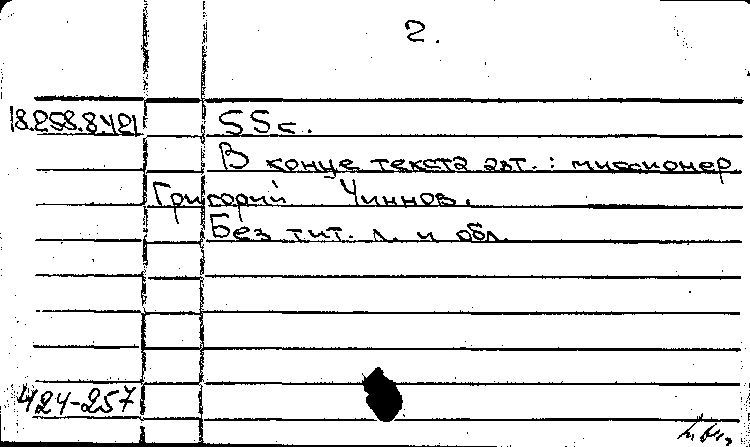 2.
18.258.8.421 55 с.
В конце текста авт.: миссионер
Григорий Чиннов.
Без тит. л. и обл.
424-257